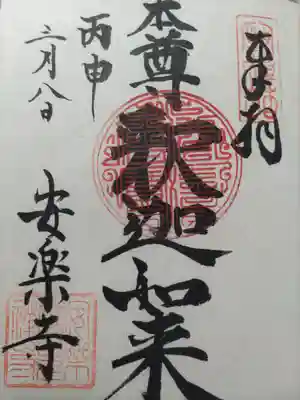 奉拝
本尊
釈迦如来
丙申
三月八日
安楽寺